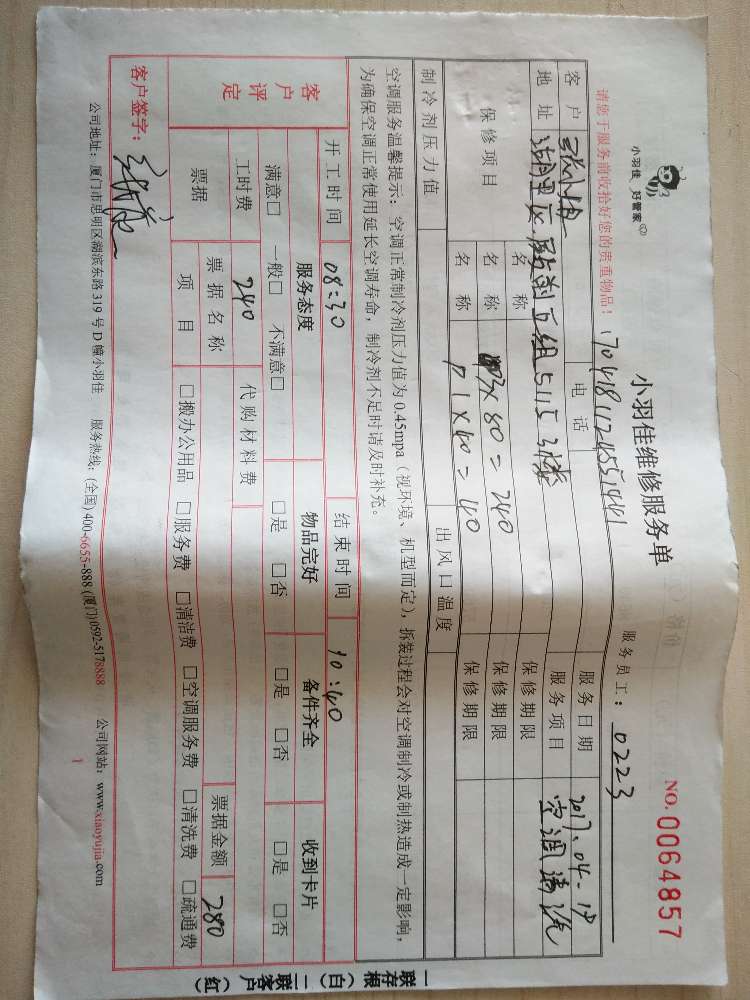 小羽佳 好管家
小羽佳维修服务单
NO. 0064857
请您于服务前收拾好您的贵重物品!
服务员工: 0223
客户 电话 服务日期 2017.04-19
地址 湖里区 5115 3楼 服务项目 空调清洗
保修项目 名称 保修期限
名称 P3×80=240 保修期限
名称 P1×40=40 保修期限
制冷剂压力值 出风口温度
空调服务温馨提示:空调正常制冷剂压力值为0.45mpa(视环境、机型而定),拆装过程会对空调制冷或制热造成一定影响,
为确保空调正常使用延长空调寿命,制冷剂不足时请及时补充。
开工时间 08:30 结束时间 10:40
客户评定 服务态度 物品完好 备件齐全 收到卡片
满意□ 一般□ 不满意□ □是 □否 □是 □否 □是 □否
工时费 240 代购材料费
票据 票据名称 票据金额 280
项目 □搬办公用品 □服务费 □清洁费 □空调服务费 □清洗费 □疏通费
客户签字:
公司地址:厦门市思明区湖滨东路319号D幢小羽佳 服务热线:(全国)400-6655-888 (厦门)0592-5178888 公司网站:www.xiaoyujia.com
1
一联存根(白) 二联客户(红)